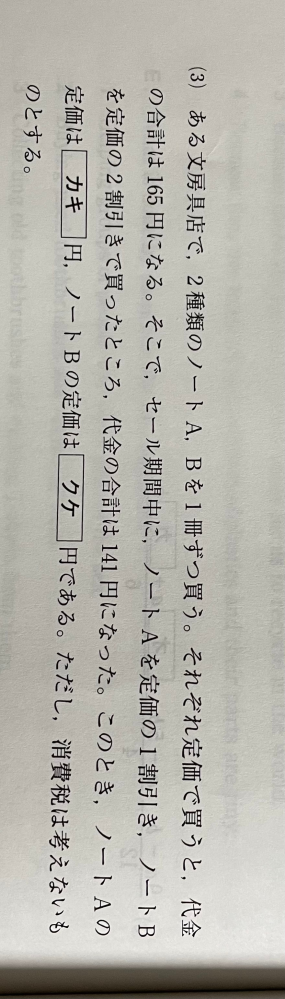 (3) ある文房具店で，2種類のノートA，Bを1冊ずつ買う。それぞれ定価で買うと，代金
の合計は165円になる。そこで，セール期間中に，ノートAを定価の1割引き，ノートB
を定価の2割引きで買ったところ，代金の合計は141円になった。このとき，ノートAの
定価は カキ 円，ノートBの定価は クケ 円である。ただし，消費税は考えないも
のとする。